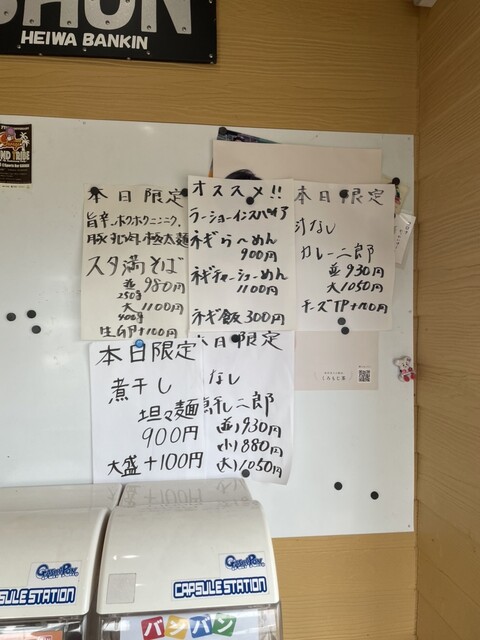 HEIWA BANKIN
本日限定
旨辛、ホクホクニンニク、
豚乳肉、極太麺
スタ満そば
並 980円
250g
大 1100円
400g
生卵+100円
オススメ!!
ラーショーインスパイア
ネギらーめん
900円
ネギチャーシューめん
1100円
ネギ飯 300円
本日限定
汁なし
カレー二郎
並 930円
大 1050円
チーズTP+100円
本日限定
煮干し
坦々麺
900円
大盛+100円
本日限定
なし
煮干し二郎
(並) 930円
(小) 880円
(大) 1050円
くろもじ茶
CAPSULE STATION
CAPSULE STATION
バンバン